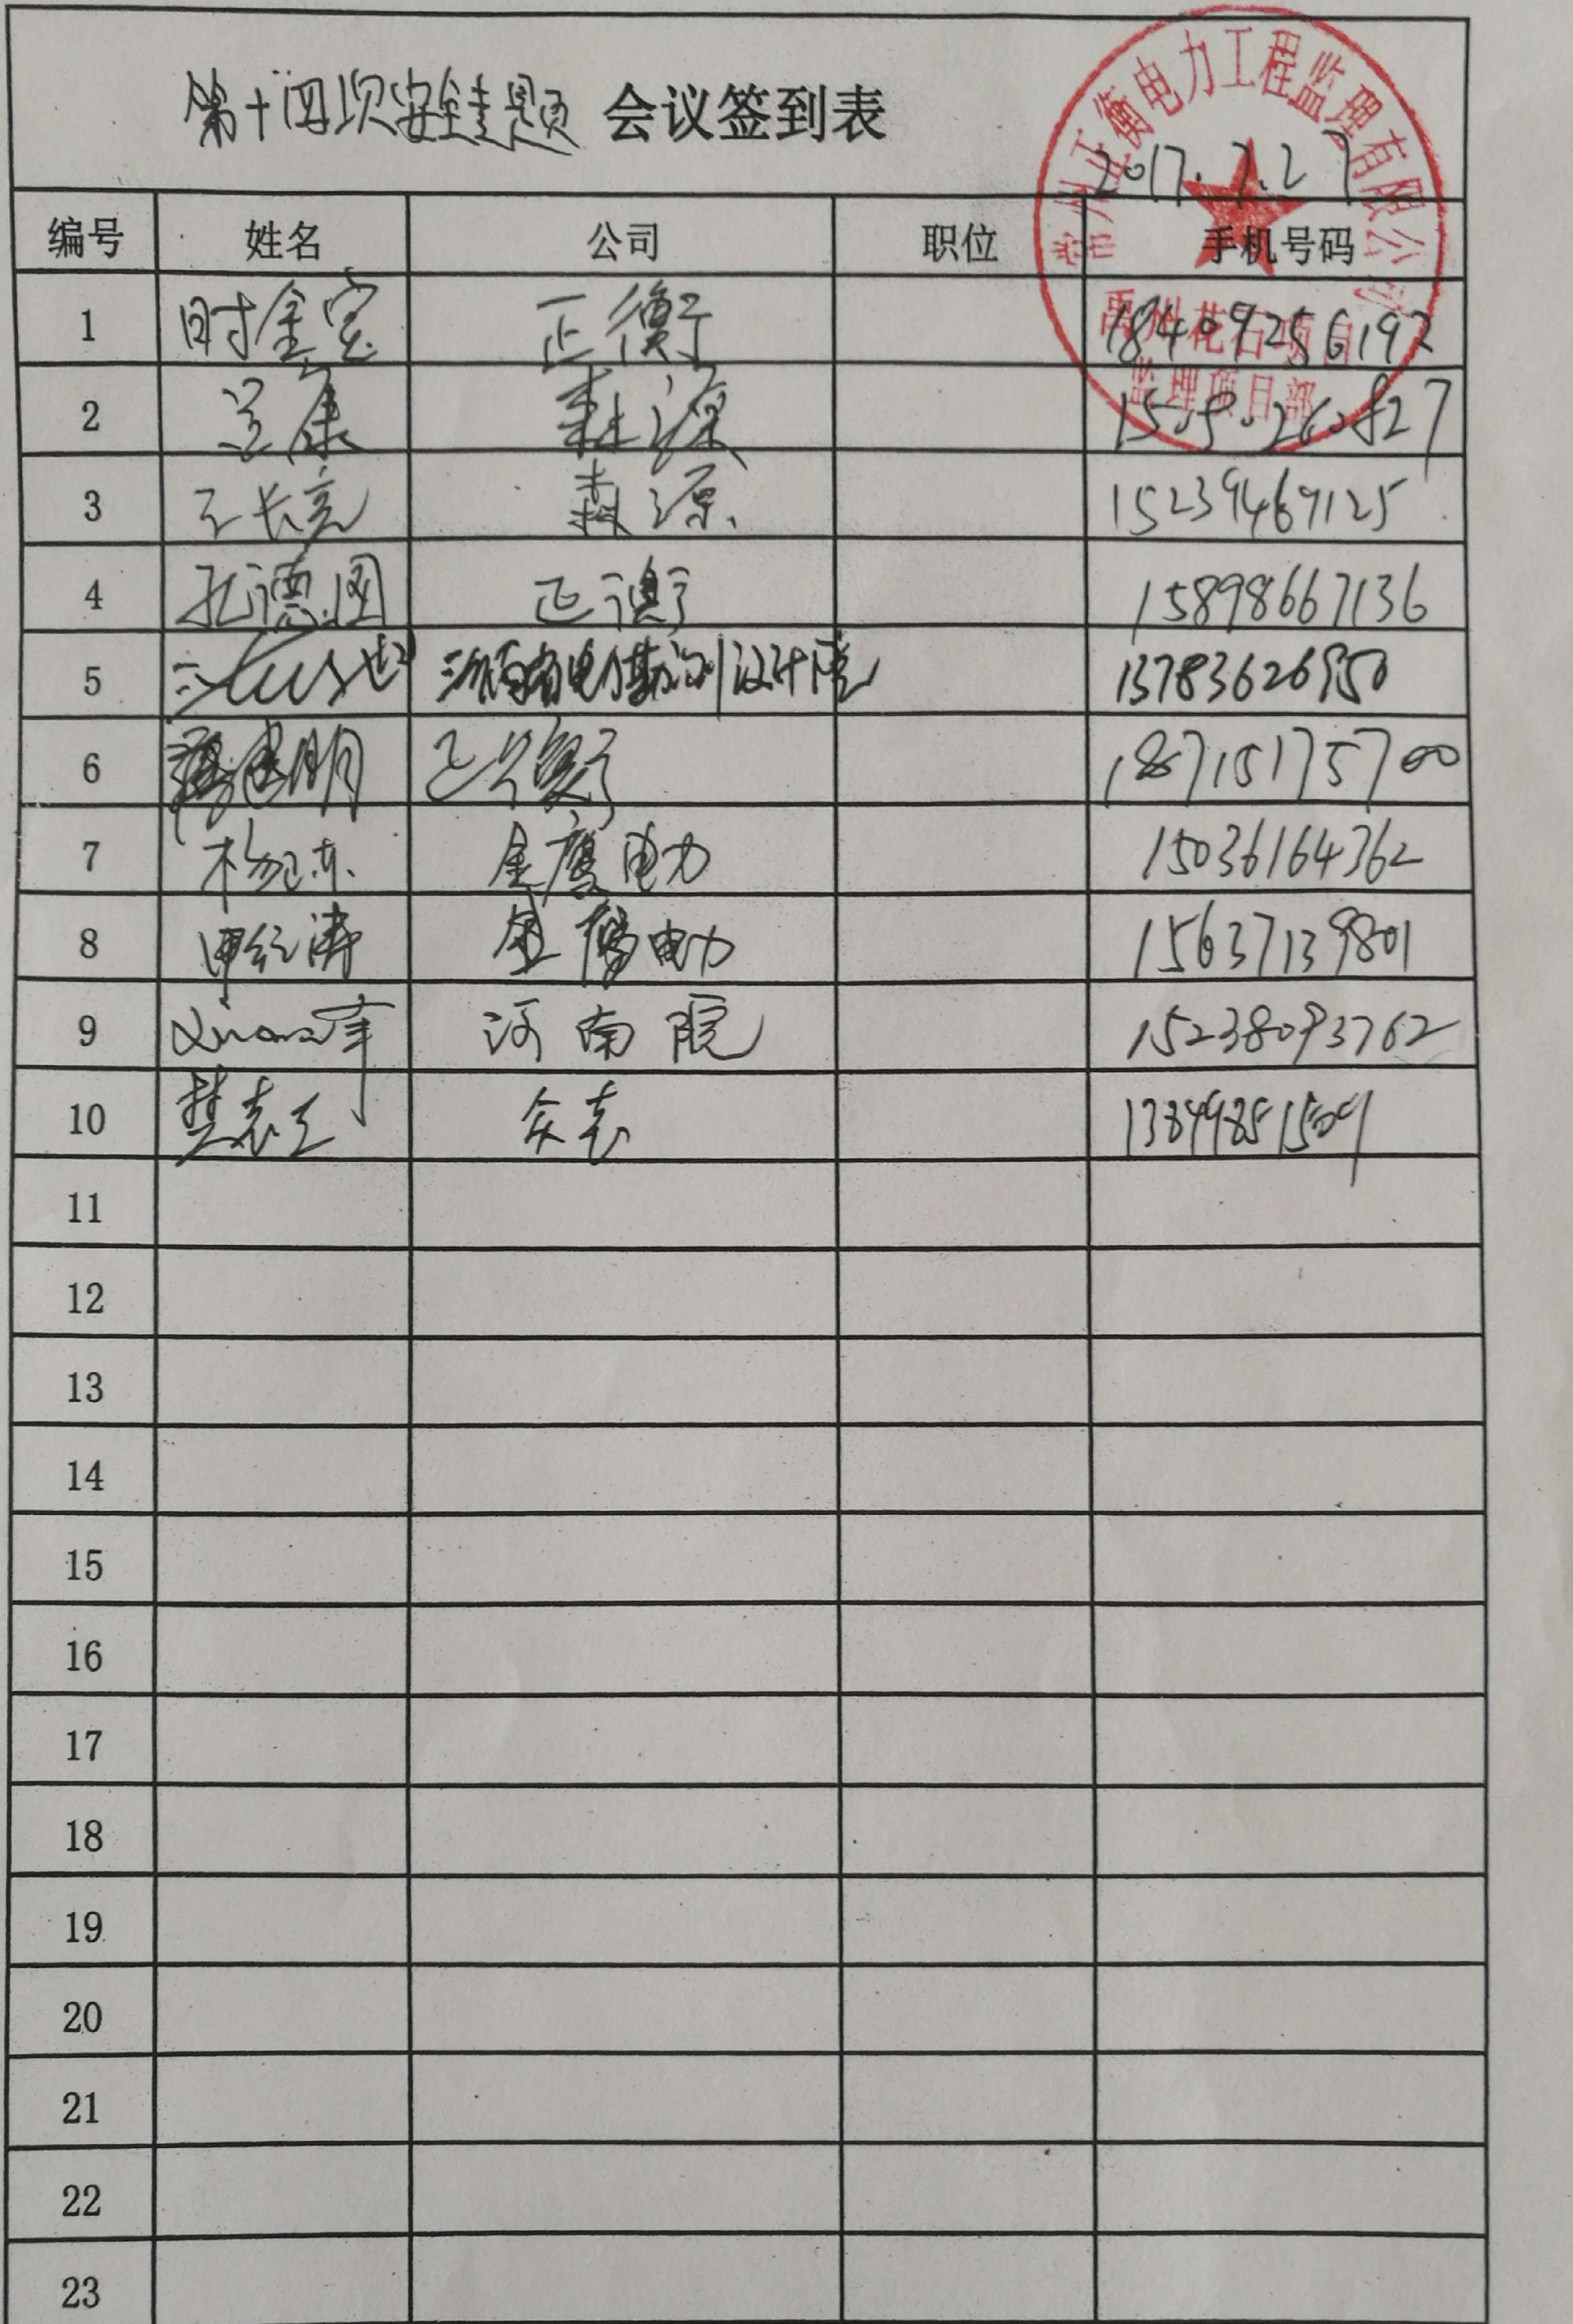 第十四次安全主题 会议签到表
常州正衡电力工程监理有限公司
2017.7.27
编号 姓名 公司 职位 手机号码
禹州花石项目
监理项目部
1 时金宝 正衡 18409256192
2 兰康 森源
3 王长亮 森源 15239469125
4 孔德图 正衡 15898667136
5 河南省电力勘测设计院 13783626950
6 明 正衡 18715175700
7 杨 金鹰电力 15036164362
8 申红涛 金鹰电力 15637139801
9 河南院 15238093762
10 楚志 13849851509
11
12
13
14
15
16
17
18
19
20
21
22
23